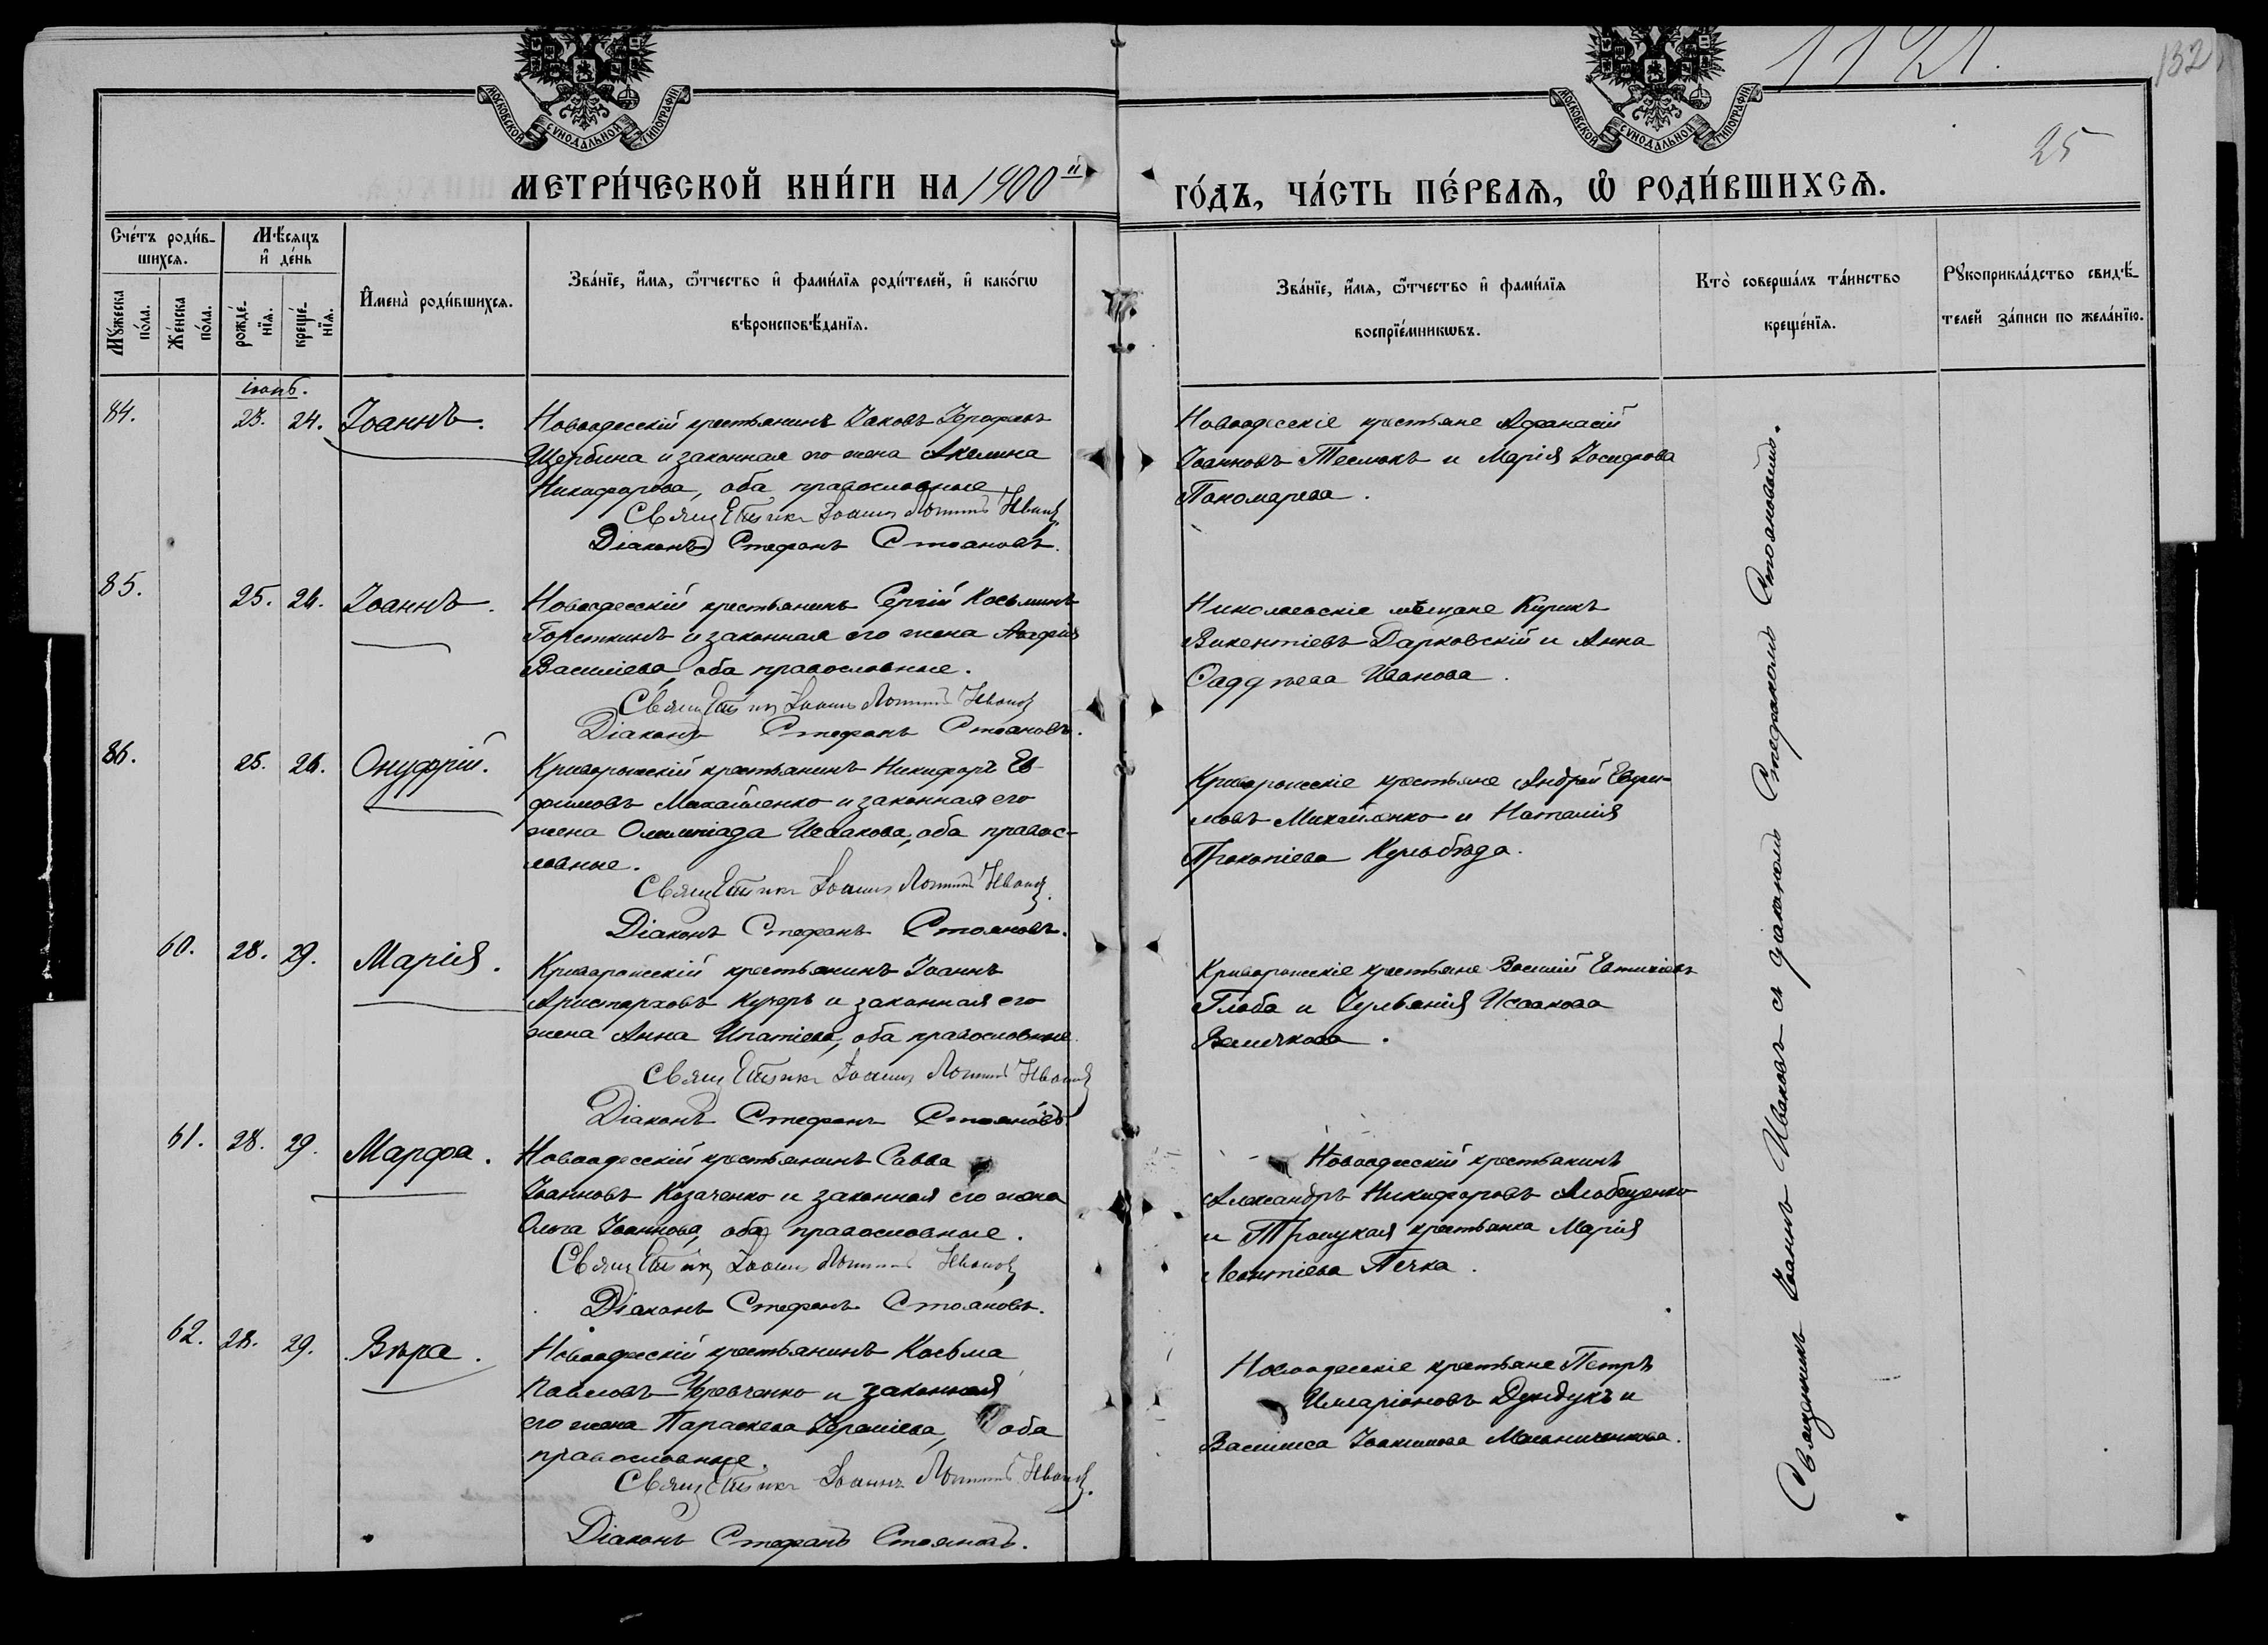 1121.
132
25
МОСКОВСКОЙ СѴНОДАЛЬНОЙ ТИПОГРАФІИ
МОСКОВСКОЙ СѴНОДАЛЬНОЙ ТИПОГРАФІИ
МЕТРИ́ЧЕСКОЙ КНИ́ГИ НА 1900й
ГО́ДЪ, ЧА́СТЬ ПЕ́РВАѦ, Ѡ҆ РОДИ́ВШИХСѦ.
Сче́тъ роди́в-
шихсѧ.
Мꙋ́жеска по́ла.
Же́нска по́ла.
Мѣ́сѧцъ и҆ де́нь
рожде́-нїѧ.
креще́-нїѧ.
И҆мена̀ роди́вшихсѧ.
Зва́нїе, и҆́мѧ, ѻ҆́тчество и҆ фами́лїѧ роди́телей, и҆ како́гѡ
вѣроисповѣ́данїѧ.
Зва́нїе, и҆́мѧ, ѻ҆́тчество и҆ фами́лїѧ
воспрїе́мникѡвъ.
Кто̀ соверша́лъ та́инство
креще́нїѧ.
Рꙋкоприкла́дство свидѣ́-
телей за́писи по жела́нїю.
іюнь.
84. 23. 24. Іоаннъ.
Новоодесскій крестьянинъ Іаковъ Іерофеевъ
Щербина и законная его жена Акилина
Никифорова, оба православные
Священникъ Іоаннъ Ивановъ
Діаконъ Стефанъ Стояновъ.
Новоодесскіе крестьяне Афанасій
Іоанновъ Теслюкъ и Марія Іосифова
Пономарева.
85. 25. 26. Іоаннъ.
Новоодесскій крестьянинъ Сергій Косьминъ
Горсткинъ и законная его жена Агафія
Василіева, оба православные.
Священникъ Іоаннъ Ивановъ
Діаконъ Стефанъ Стояновъ.
Николаевскіе мѣщане Кирикъ
Викентіевъ Дарковскій и Анна
Фаддѣева Иванова.
86. 25. 26. Онуфрій.
Криворожскій крестьянинъ Никифоръ Ев-
фимовъ Михайленко и законная его
жена Олимпіада Исаакова, оба правос-
лавные.
Священникъ Іоаннъ Ивановъ.
Діаконъ Стефанъ Стояновъ.
Криворожскіе крестьяне Андрей Евфи-
мовъ Михайленко и Наталія
Прокопіева Кульбѣда.
60. 28. 29. Марія.
Криворожскій крестьянинъ Іоаннъ
Аристарховъ Кучеръ и законная его
жена Анна Ипатіева, оба православные.
Священникъ Іоаннъ Ивановъ
Діаконъ Стефанъ Стояновъ.
Криворожскіе крестьяне Василій Евтихіевъ
Глоба и Іуліанія Исаакова
Величкова.
61. 28. 29. Марфа.
Новоодесскій крестьянинъ Савва
Іоанновъ Козаченко и законная его жена
Ольга Іоаннова, оба православные.
Священникъ Іоаннъ Ивановъ
Діаконъ Стефанъ Стояновъ.
Новоодесскій крестьянинъ
Александръ Никифоровъ
и Троицкая крестьянка Марія
Леонтіева Печка.
62. 28. 29. Вѣра.
Новоодесскій крестьянинъ Косьма
Павловъ Шевченко и законная
его жена Параскева, оба
православные.
Священникъ Іоаннъ Ивановъ.
Діаконъ Стефанъ Стояновъ.
Новоодесскіе крестьяне Петръ
Иларіоновъ Дундукъ и
Василиса Іоакимова Мельниченкова.
Священникъ Іоаннъ Ивановъ съ діакономъ Стефаномъ Стояновымъ.